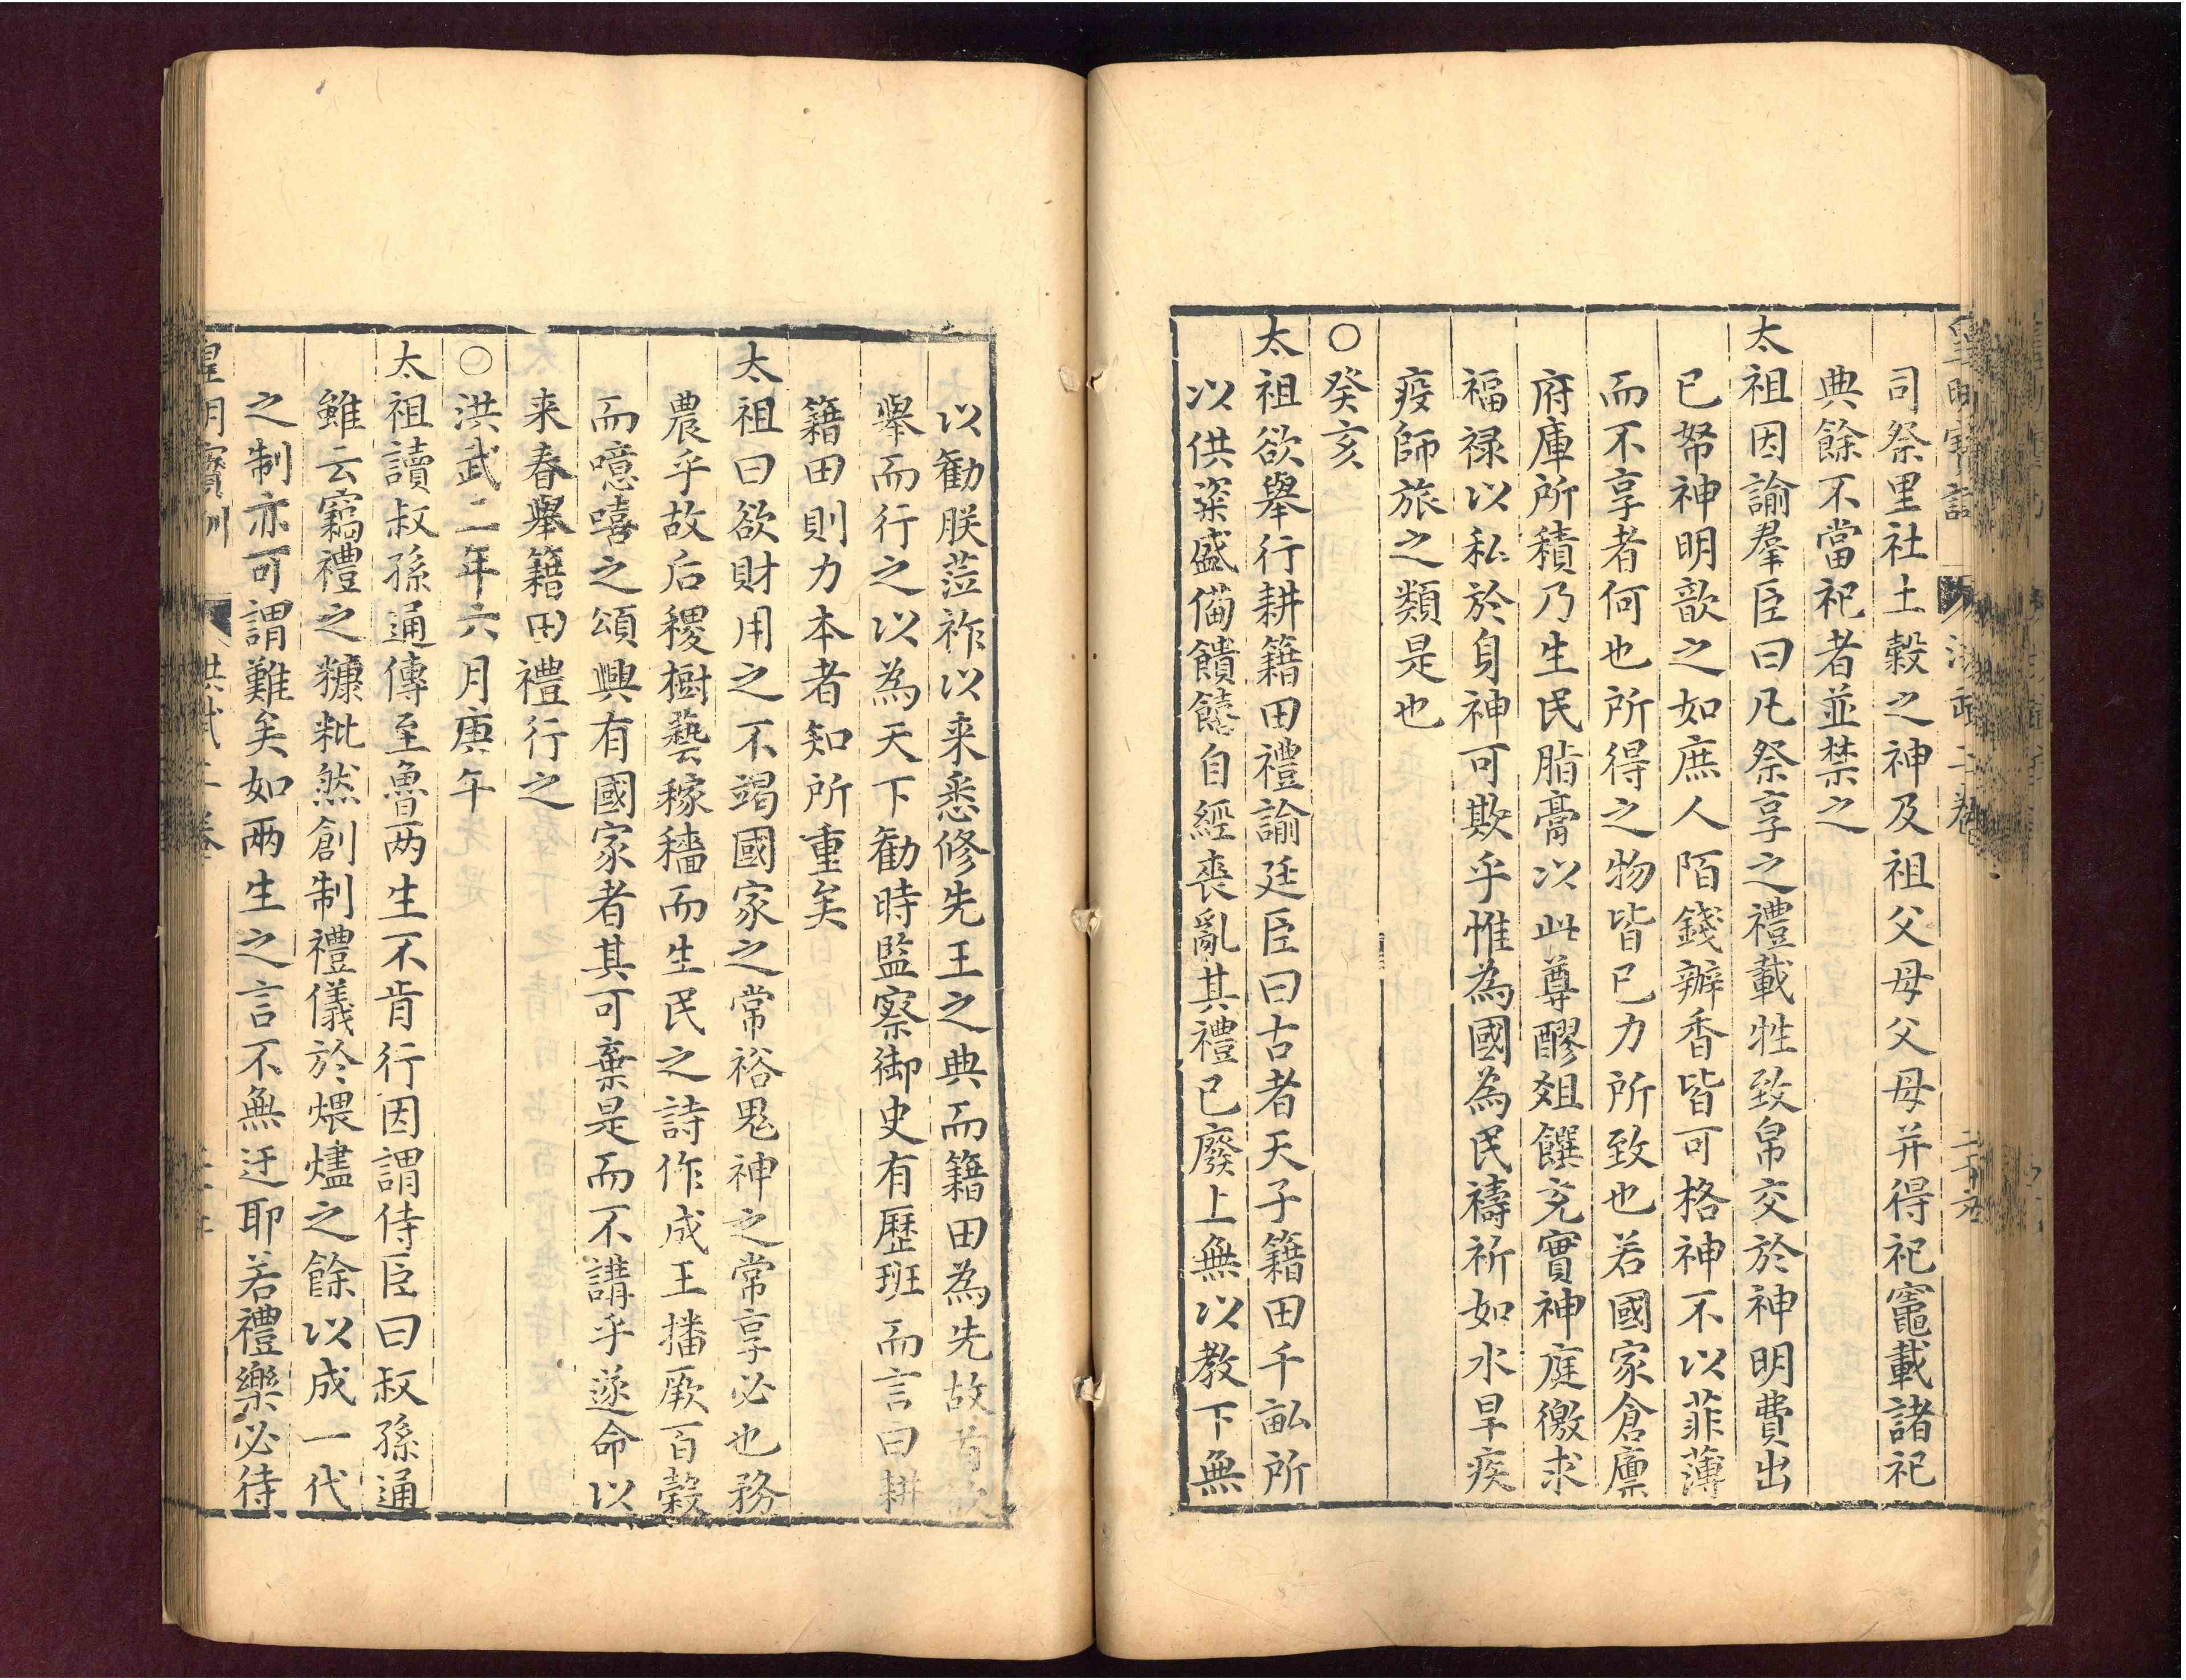 司祭里社土穀之神及祖父母父母并得祀竈載諸祀
典餘不當祀者並禁之
太祖因諭羣臣曰凡祭享之禮載牲致帛交於神明費出
已帑神明歆之如庶人陌錢瓣香皆可格神不以菲薄
而不享者何也所得之物皆已力所致也若國家倉廩
府庫所積乃生民脂膏以此尊醪俎饌充實神庭徼求
福禄以私於身神可欺乎惟為國為民禱祈如水旱疾
疫師旅之類是也
○癸亥
太祖欲舉行耕籍田禮諭廷臣曰古者天子籍田千畝所
以供粢盛俻饋饎自經喪亂其禮已廢上無以教下無
以勸朕莅祚以来悉修先王之典而籍田為先故首欲
舉而行之以為天下勸時監察御史有歷班而言曰耕
籍田則力本者知所重矣
太祖曰欲財用之不竭國家之常裕鬼神之常享必也務
農乎故后稷樹藝稼穡而生民之詩作成王播厥百穀
而噫嘻之頌興有國家者其可棄是而不講乎遂命以
来春舉籍田禮行之
○洪武二年六月庚午
太祖讀叔孫通傳至魯两生不肯行因謂侍臣曰叔孫通
雖云竊禮之糠粃然創制禮儀於煨燼之餘以成一代
之制亦可謂難矣如两生之言不無迂耶若禮樂必待
皇明寶訓 洪武二卷